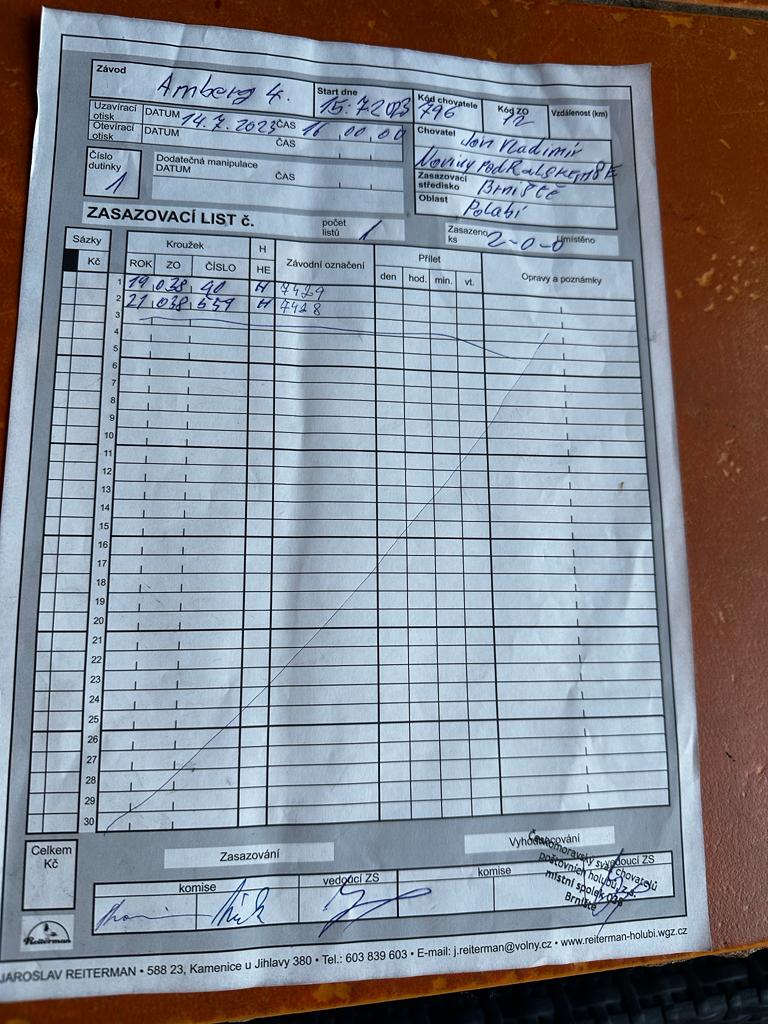 Závod Amberg 4. Start dne 15.7.2023 Kód chovatele 796 Kód ZO 12 Vzdálenost (km)
Uzavírací otisk DATUM 14.7.2023 ČAS 16,00,00
Otevírací otisk DATUM ČAS
Chovatel Jon Vladimír
Noviny pod Ralskem
Číslo dutinky 1
Dodatečná manipulace
DATUM ČAS
Zasazovací středisko Brniště
Oblast Polabí
ZASAZOVACÍ LIST č. počet listů 1
Zasazeno ks 2-0-0 Umístěno
Sázky Kroužek H Závodní označení Přílet Opravy a poznámky
Kč ROK ZO ČÍSLO HE den hod. min. vt.
1 19 038 90 H 7429
2 21 038 559 H 7428
3
4
5
6
7
8
9
10
11
12
13
14
15
16
17
18
19
20
21
22
23
24
25
26
27
28
29
30
Celkem Kč
Zasazování Vyhodnocování
komise vedoucí ZS komise vedoucí ZS
Českomoravský svaz chovatelů
poštovních holubů, z.s.
místní spolek 038
Brniště
Reiterman
JAROSLAV REITERMAN • 588 23, Kamenice u Jihlavy 380 • Tel.: 603 839 603 • E-mail: j.reiterman@volny.cz • www.reiterman-holubi.wgz.cz